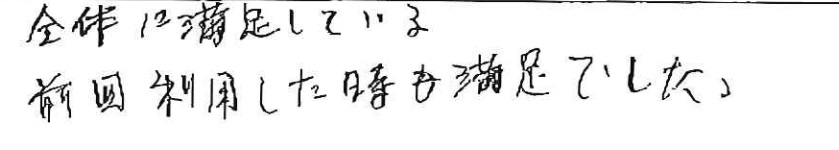 全体に満足している
前回利用した時も満足でした。